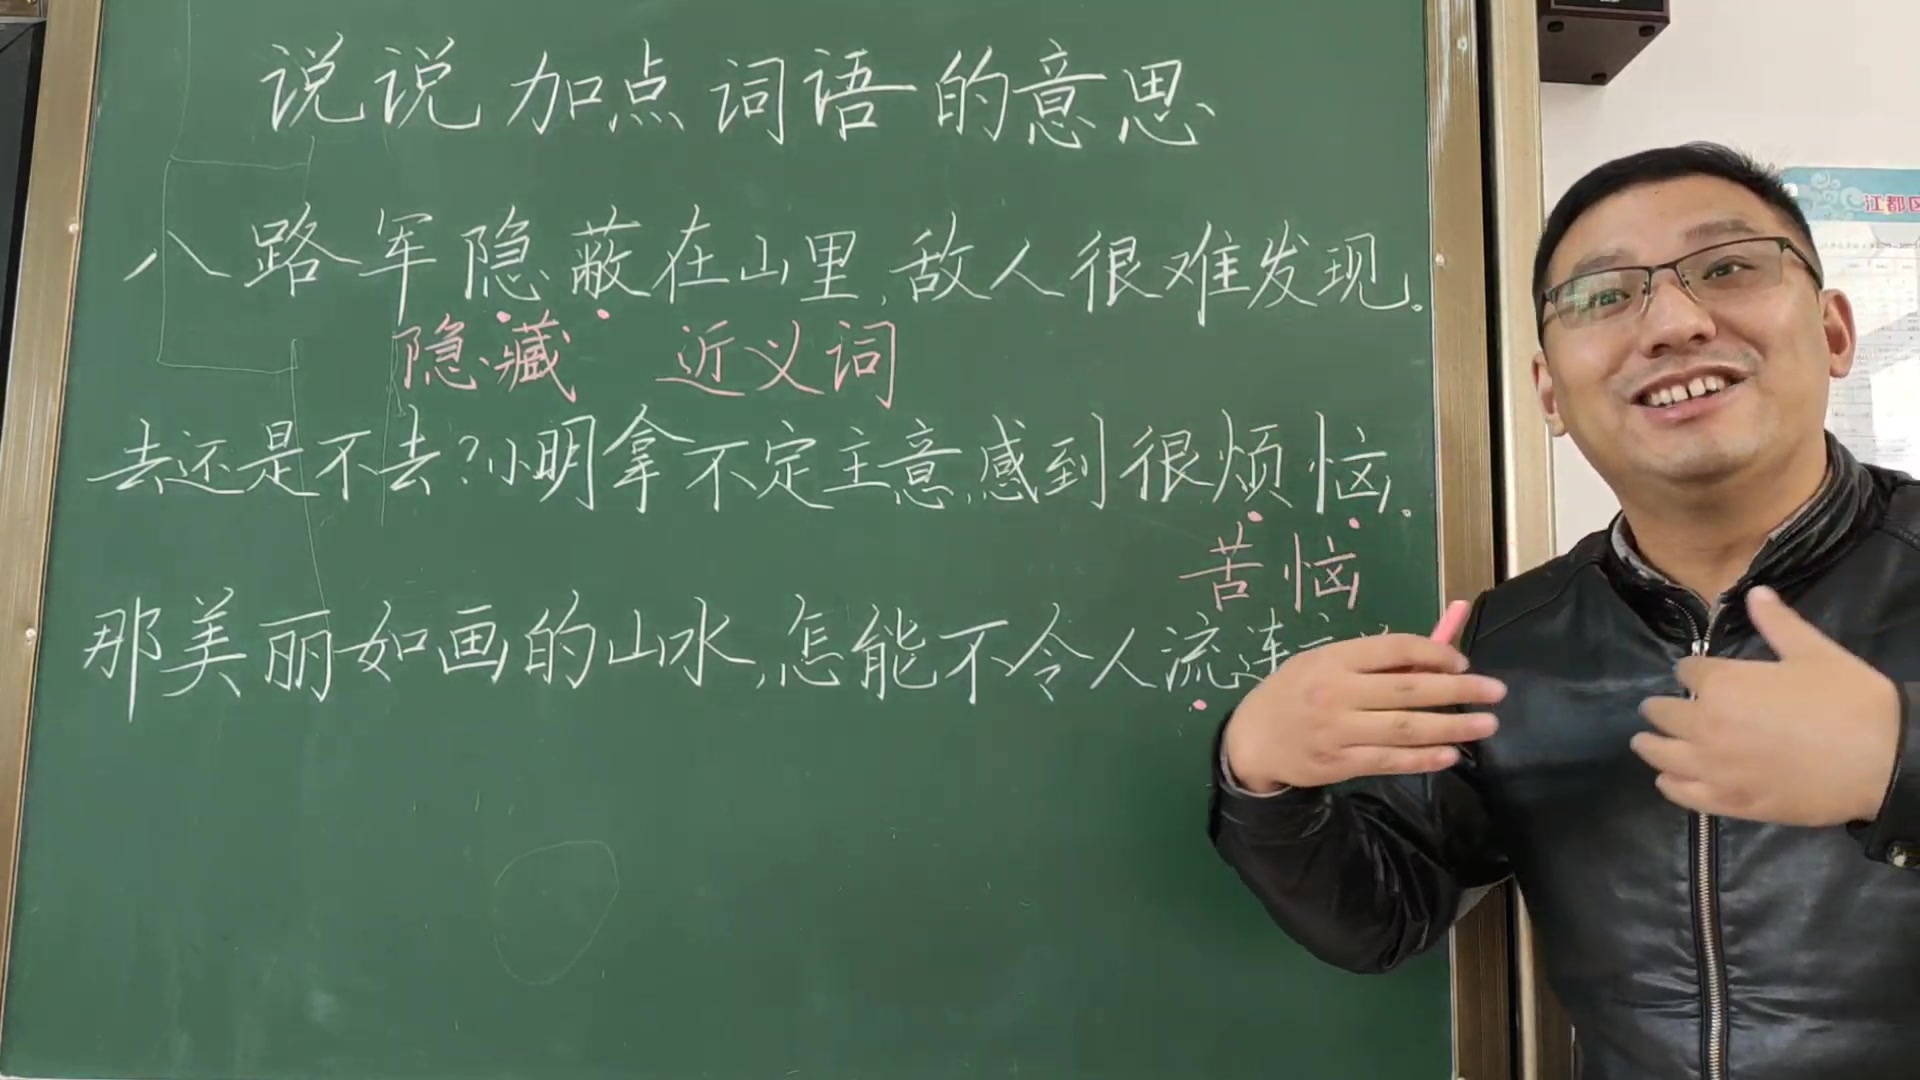 说说加点词语的意思
八路军隐蔽在山里,敌人很难发现。
隐藏 近义词
去还是不去?小明拿不定主意,感到很烦恼。
苦恼
那美丽如画的山水,怎能不令人流连
江都区